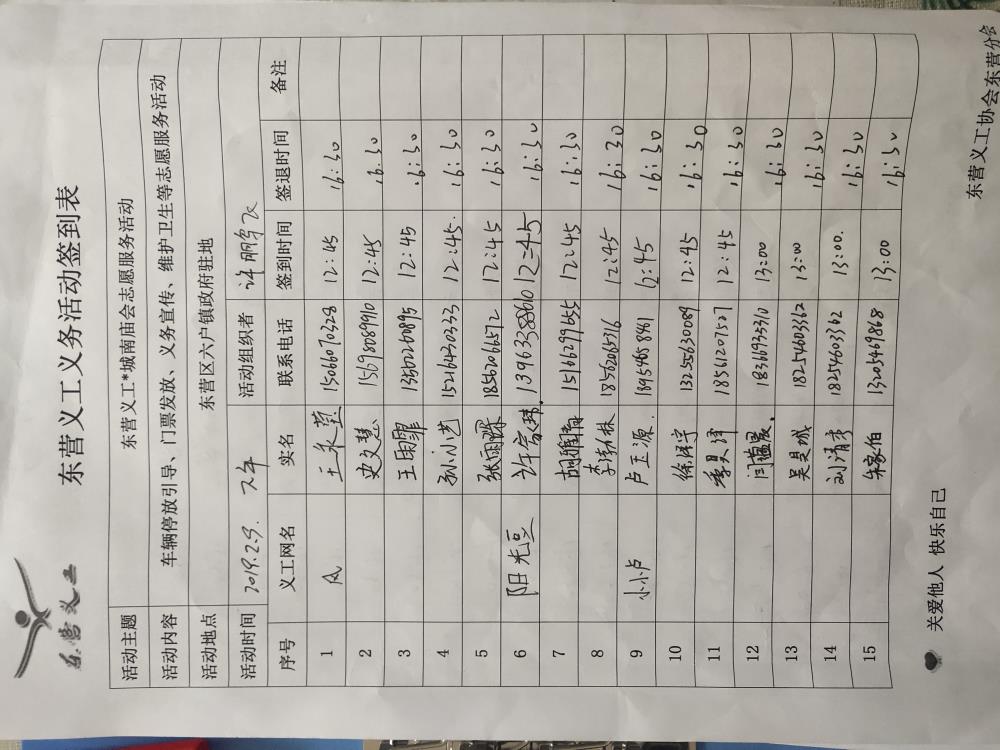 东营义工
东营义工义务活动签到表
活动主题 东营义工*城南庙会志愿服务活动
活动内容 车辆停放引导、门票发放、义务宣传、维护卫生等志愿服务活动
活动地点 东营区六户镇政府驻地
活动时间 2019.2.9. 下午 活动组织者 许鹏飞
序号 义工网名 实名 联系电话 签到时间 签退时间 备注
1 风 王永 15066070328 12:45 16:30
2 史文慧 15698089910 12:45 16:30
3 王雨霏 13562260895 12:45 16:30
4 孙小艺 15216430333 12:45. 16:30
5 张雨 18562066572 12:45 16:30
6 阳光豆 许家玮. 13963388610 12:45 16:30
7 胡 15166299655 12:45 16:30
8 李 林 18562065716 12:45 16:30
9 小小卢 卢玉源. 18954688461 12:45 16:30
10 徐 宇 13255630089 12:45 16:30
11 季 泽 18561201507 12:45 16:30
12 闫蕴晨. 18366935310 13:00 16:30
13 吴昊城 18254603362 13:00 16:30
14 刘清 18254603362 13:00. 16:30
15 朱家伯 13205469868 13:00 16:30
关爱他人 快乐自己
东营义工协会东营分会